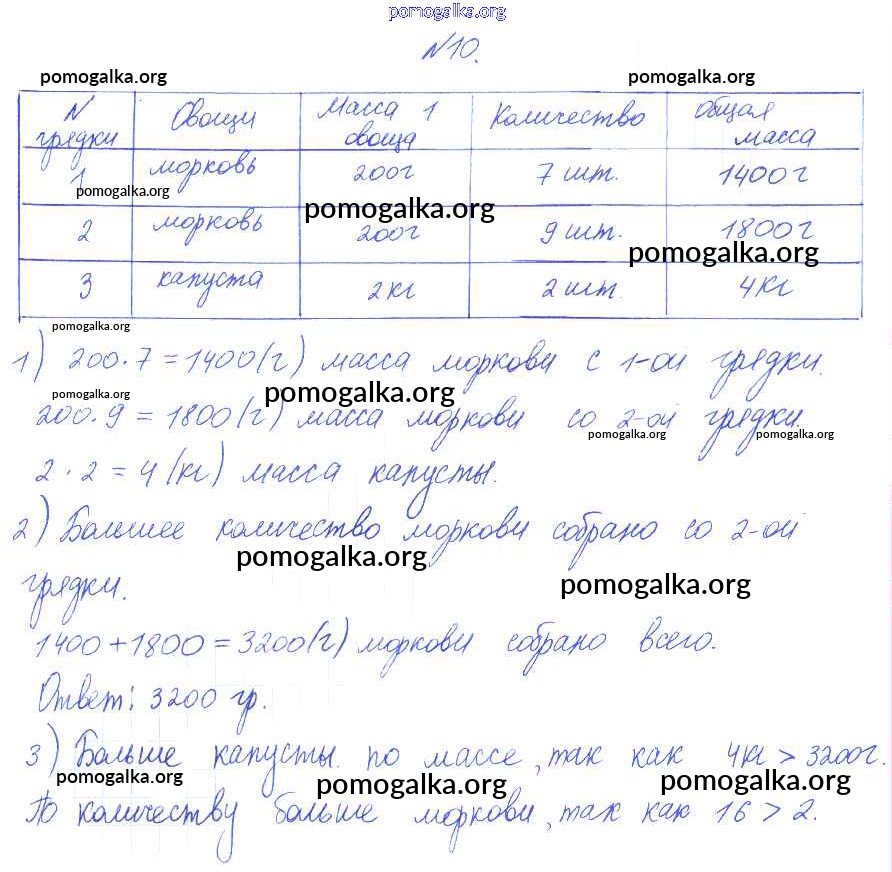 pomogalka.org
№10.
pomogalka.org pomogalka.org
N грядки Овощи Масса 1 овоща Количество Общая масса
1 морковь 200г 7 шт. 1400г
pomogalka.org
pomogalka.org
2 морковь 200г 9 шт. 1800г
pomogalka.org
3 капуста 2кг 2 шт. 4кг
pomogalka.org
1) 200·7=1400(г) масса моркови с 1-ой грядки.
pomogalka.org pomogalka.org
200·9=1800(г) масса моркови со 2-ой грядки.
pomogalka.org pomogalka.org
2·2=4(кг) масса капусты.
2) Большее количество моркови собрано со 2-ой
pomogalka.org
грядки.
pomogalka.org
1400+1800=3200(г) моркови собрано всего.
Ответ: 3200 гр.
3) Больше капусты по массе, так как 4кг>3200г.
pomogalka.org pomogalka.org pomogalka.org
По количеству больше моркови, так как 16>2.